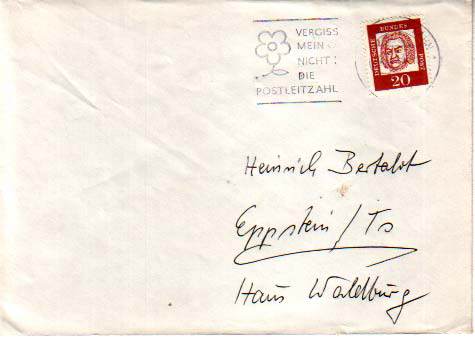 VERGISS
MEIN
NICHT
DIE
POSTLEITZAHL
DEUTSCHE
BUNDES
POST
20
Heinrich Bertaldt
Eppstein/Ts
Haus Waldburg